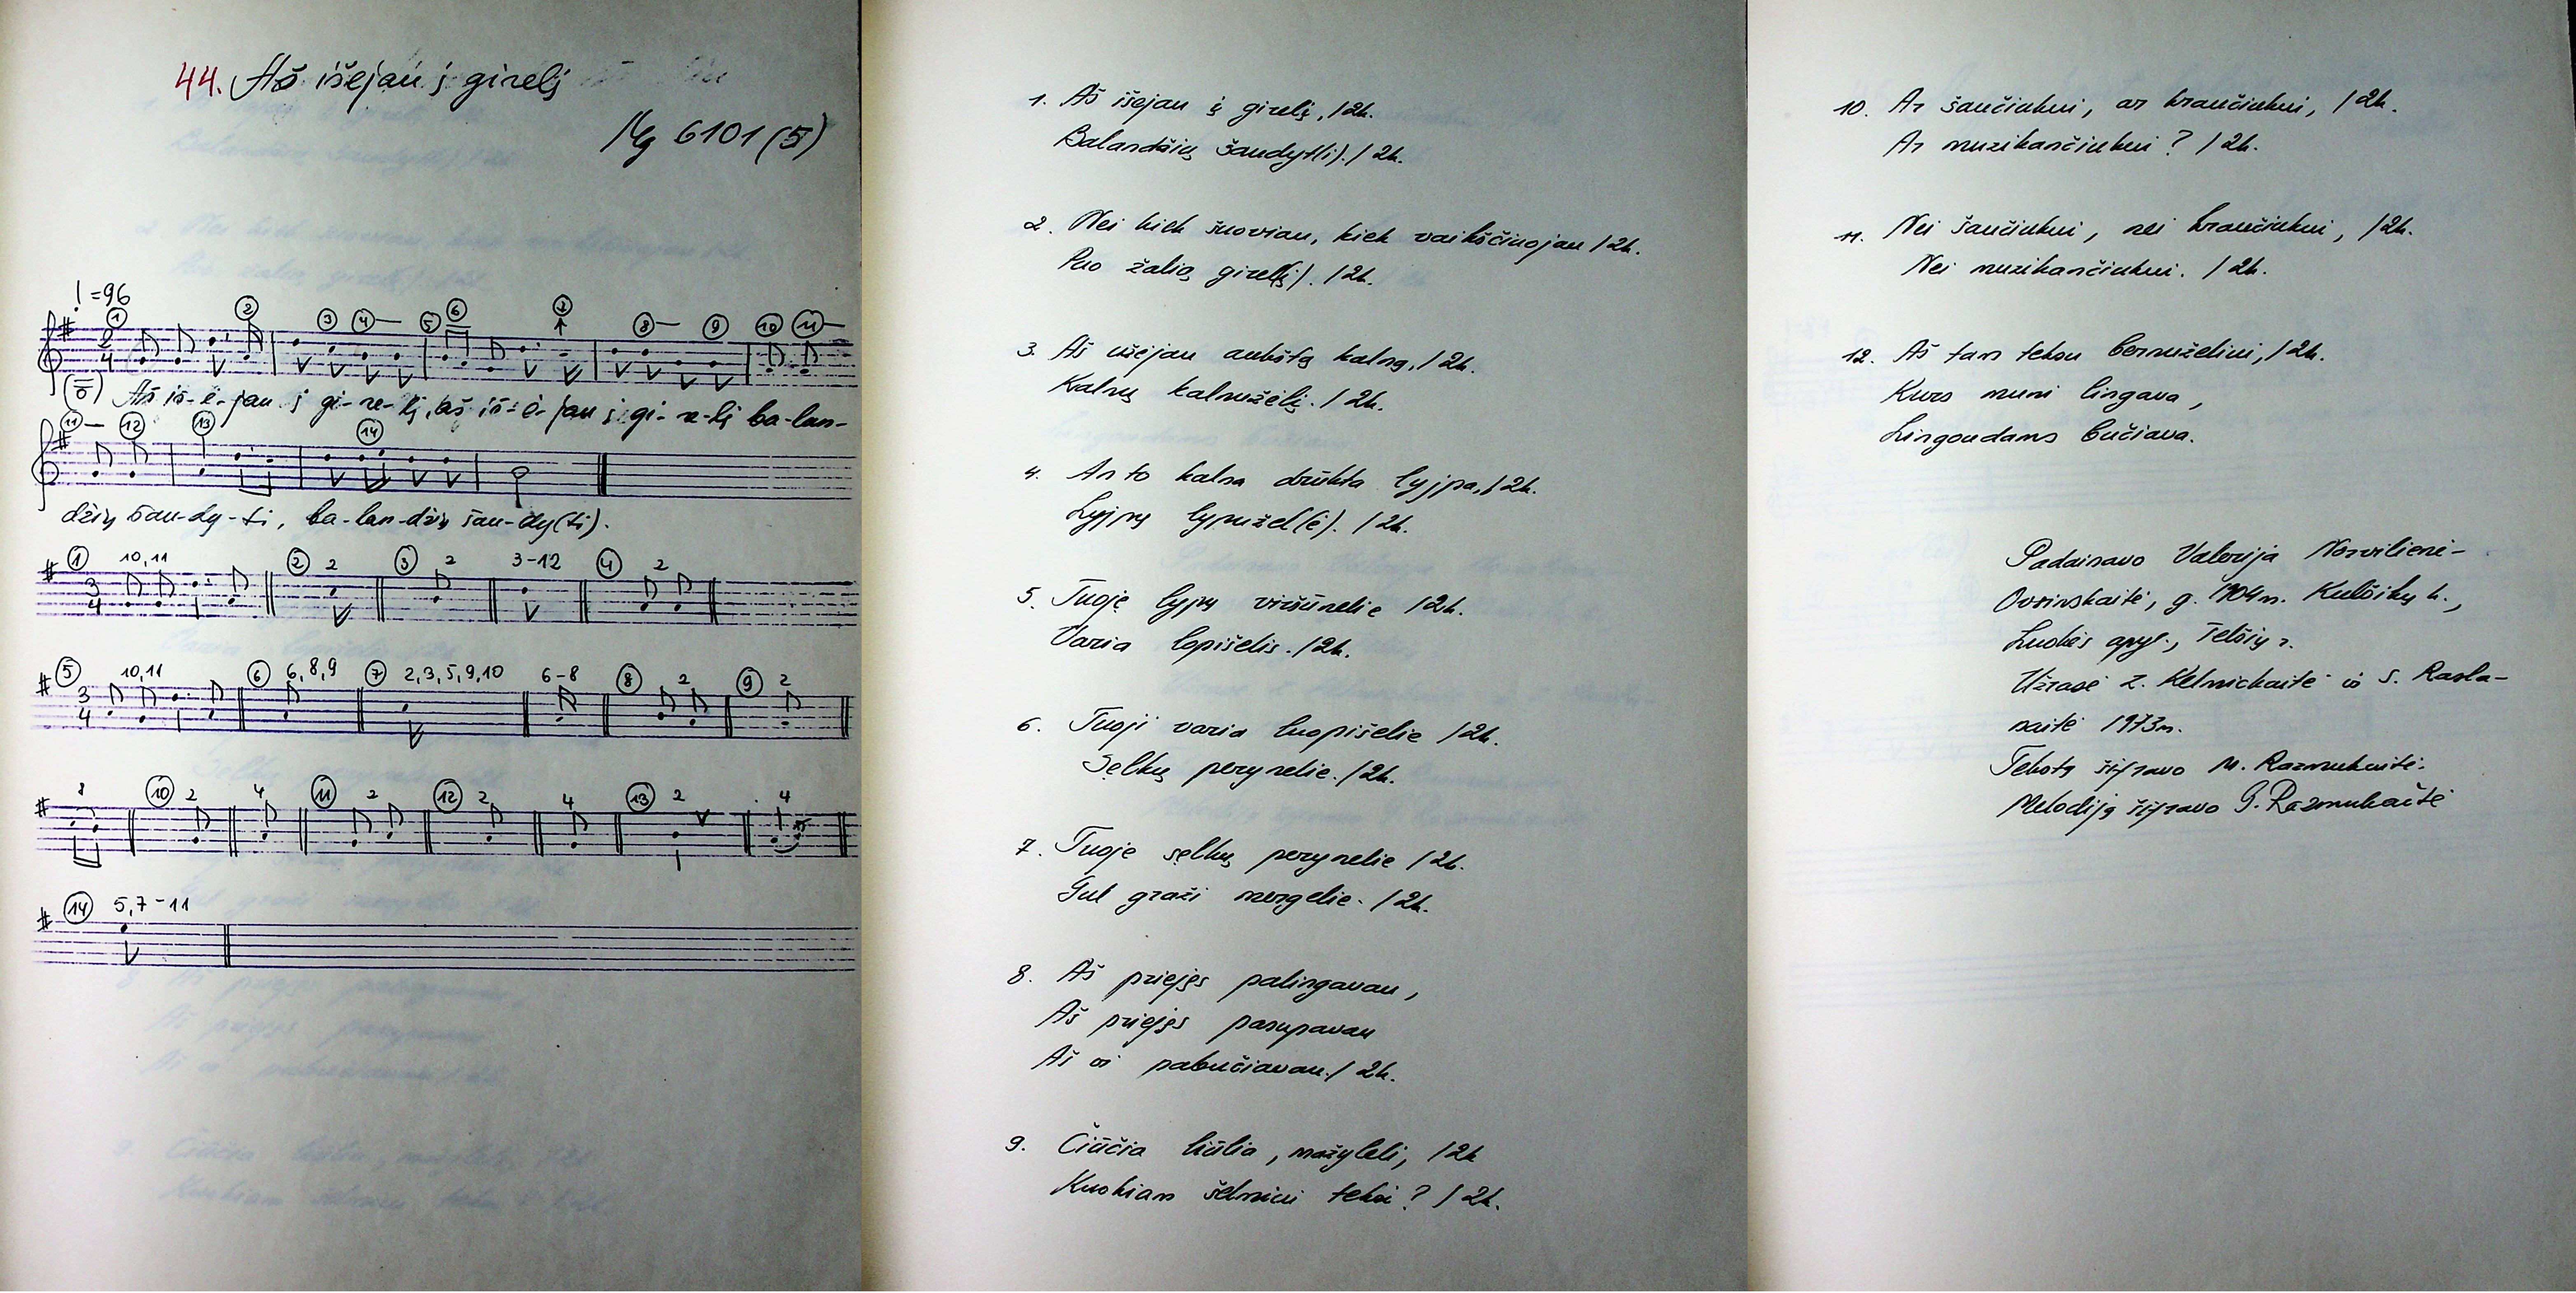 44. Aš išejau į girelį
Mg 6101 (5)
! = 96
1 2 3 4 5 6 8 9 10 11
2 4
Aš iš-ė-jau į gi-re-lį, aš iš-ė-jau į gi-re-lį ba-lan-
11 12 13 14
džių šau-dy-ti, ba-lan-džių šau-dy(ti).
1 10, 11 2 2 3 2 3-12 4 2
3 4
5 10, 11 6 6, 8, 9 7 2, 3, 5, 9, 10 6-8 8 2 9 2
3 4
8 10 2 4 11 2 12 2 4 13 2 4
14 5, 7-11
1. Aš išejau į girelį, /2k.
Balandžių šaudyt(i). /2k.
2. Nei kiek šuoviau, kiek vaikščiuojau /2k.
Puo žalią girel(į). /2k.
3. Aš užėjau aukštą kalną, /2k.
Kalnų kalnužėlį. /2k.
4. An to kalna drūkta lyjpa, /2k.
Lyjpų lypužel(ė). /2k.
5. Tuoję lyjpų viršūnelie /2k.
Varia lopišelis. /2k.
6. Tuoji varia luopišelie /2k.
Šęlkų perynelie. /2k.
7. Tuoje šęlkų perynelie /2k.
Gul graži mergelie. /2k.
8. Aš priejęs palingavau,
Aš priejęs pasupavau
Aš ir pabučiavau. /2k.
9. Čiūčia liūlia, mažyleli, /2k
Kuokiam šelmiui teksi? /2k.
10. Ar šaučiukui, ar kraučiukui, /2k.
Ar muzikančiukui? /2k.
11. Nei šaučiukui, nei kraučiukui, /2k.
Nei muzikančiukui. /2k.
12. Aš tam teksu bernuželiui, /2k.
Kurs muni lingava,
Lingoudams bučiava.
Padainavo Valerija Norvilienė-
Ovsinskaitė, g. 1904 m. Kulšikų k.,
Luokės apyl., Telšių r.
Užrašė Z. Kelmickaitė ir S. Rasla-
naitė 1973 m.
Tekstą šifravo M. Razmukaitė.
Melodiją šifravo G. Razmukaitė